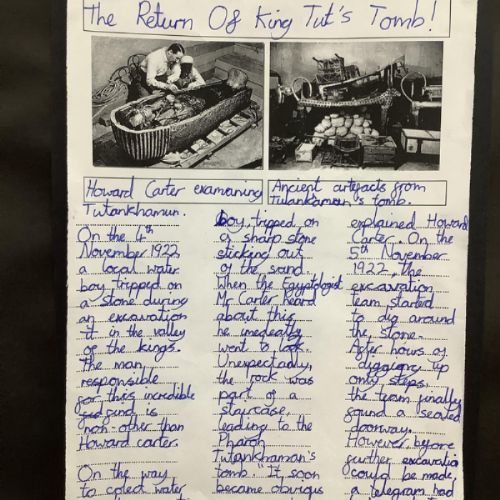 The Return Of King Tut's Tomb!
Howard Carter examaning
Tutankhamun.
Ancient artefacts from
Tutankaman's tomb.
On the 4th
November 1922
a local water
boy tripped on
a stone during
an excavation
it in the valley
of the kings.
The man
responsible
for this incredible
find is
non other than
Howard carter.
On the way
to colect water
boy, tripped on
a sharp stone
sticking out
of the sand.
When the Egyptologist
Mr Carter heard
about this,
he imedeatly
went to look.
Unexpectadly,
the rock was
part of a
staircase,
leading to the
Pharoh
Tutankhaman's
tomb. "It soon
became obvious
explained Howard
Carter. On the
5th November
1922, the
excavation
team started
to dig around
the stone.
After hours of
digging up
only steps,
the team finally
found a sealed
doorway.
However, before
further excavation
could be made,
a telegram had